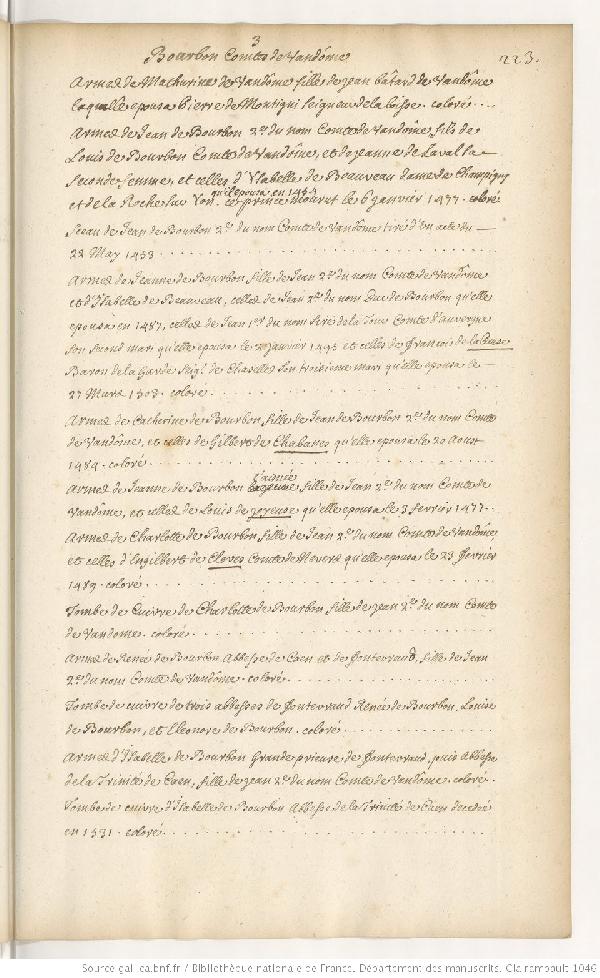 3
Bourbon Comte de Vandôme
223.
Armes de Mathurine de Vandôme fille de Jean bâtard de Vandôme
laquelle epousa Pierre de Montigni seigneur de la boisse. coloré....
Armes de Jean de Bourbon 2e. du nom Comte de Vandôme, fils de
Louis de Bourbon Comte de Vandôme, et de jeanne de Laval sa
seconde femme, et celles d'Ysabelle de Beauveau dame de Champigny
qu'il epousa en 1454
et de la Roche sur Yon. ce prince mourut le 6 janvier 1477. coloré
Sceau de Jean de Bourbon 2e. du nom Comte de Vandôme tiré d'un acte du
22 May 1453
Armes de Jeanne de Bourbon fille de Jean 2e. du nom Comte de Vandôme
et d'Isabelle de Beauveau, celles de Jean 2e. du nom Duc de Bourbon qu'elle
epousa en 1487, celles de Jean 1er. du nom Sire de la Tour Comte d'auvergne
son second mari qu'elle epousa le janvier 1495 et celles de François de la
Baron de la Garde seigr. de Chazelles son troisieme mari qu'elle epousa le
27 Mars 1503. coloré
Armes de Catherine de Bourbon fille de Jean de Bourbon 2e. du nom Comte
de Vandôme, et celles de Gilbert de Chabanes qu'elle epousa le 20 Aoust
1484. coloré
l'ainée
Armes de Jeanne de Bourbon, fille de Jean 2e. du nom Comte de
Vandôme, et celles de Louis de joyeuse qu'elle epousa le 3 fevrier 1477.
Armes de Charlotte de Bourbon fille de Jean 2e. du nom Comte de Vandôme
et celles d'Engilbert de Cleves Comte de Nevers qu'elle epousa le 23 fevrier
1489. coloré
Tombe de Cuivre de Charlotte de Bourbon fille de jean 2e. du nom Comte
de Vandome. coloré
Armes de Renée de Bourbon Abbesse de Caen et de fontevraud, fille de Jean
2e. du nom Comte de Vandôme. coloré
Tombe de cuivre de trois abbesses de fontevraud Renée de Bourbon, Louise
de Bourbon, et Eleonore de Bourbon. coloré
Armes d'Isabelle de Bourbon Grande prieure de fontevraud, puis Abbesse
de la Trinité de Caen, fille de jean 2e. du nom Comte de Vandôme. coloré.
Tombe de cuivre d'Isabelle de Bourbon Abbesse de la Trinité de Caen decedée
en 1531. coloré
Source gallica.bnf.fr / Bibliothèque nationale de France. Département des manuscrits. Clairambault 1046